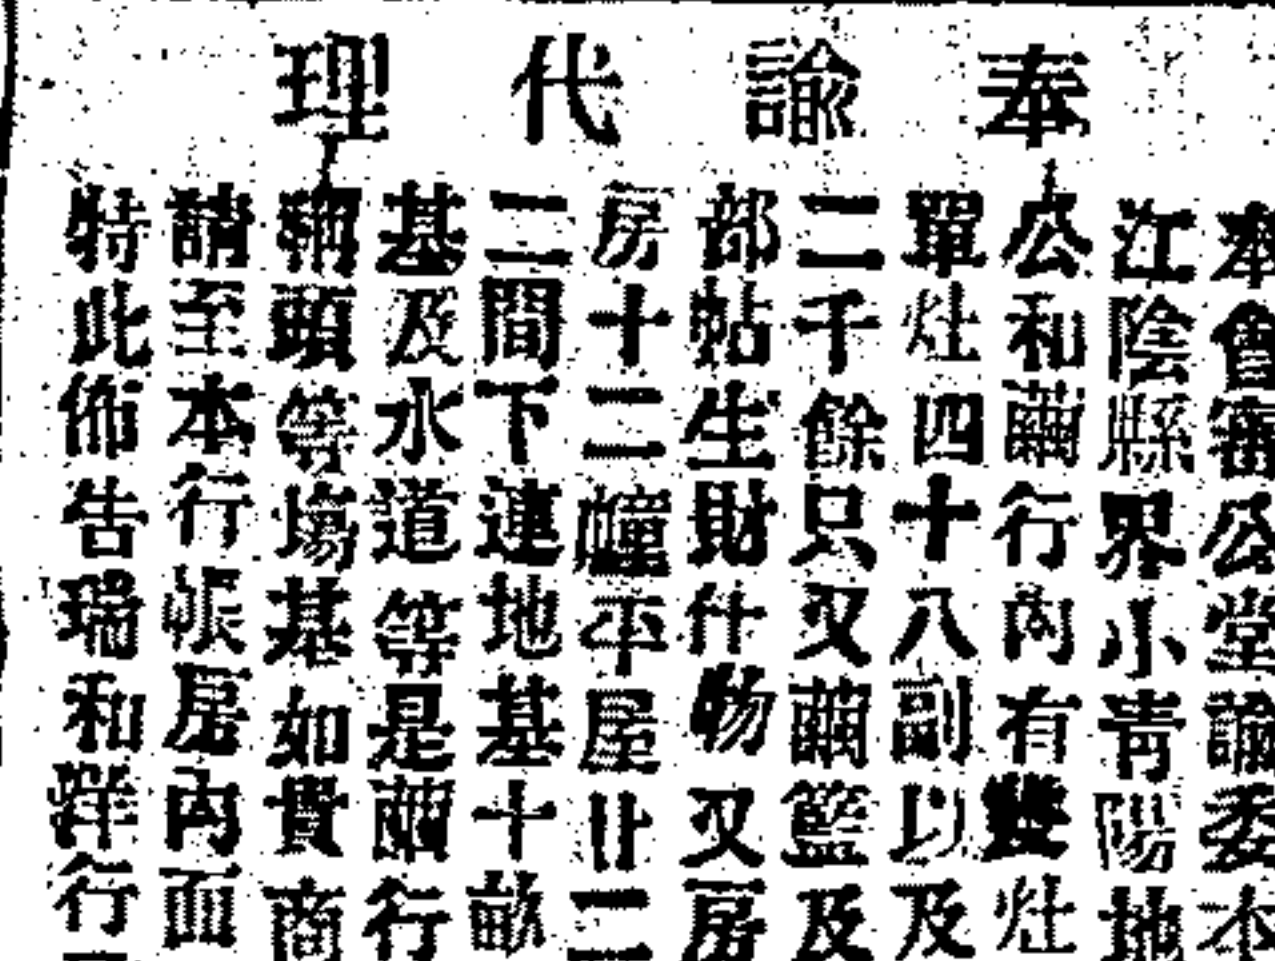 奉諭代理
本會審公堂諭委本
江陰縣界小青陽地
公和繭行內有雙灶
單灶四十八副以及
二千餘只又繭籃及
部帖生財什物又房
房十二幢平屋廿二
二間下連地基十畝
基及水道等是繭行
頭等場基如貴商
請至本行帳房內面
特此佈告瑞和洋行